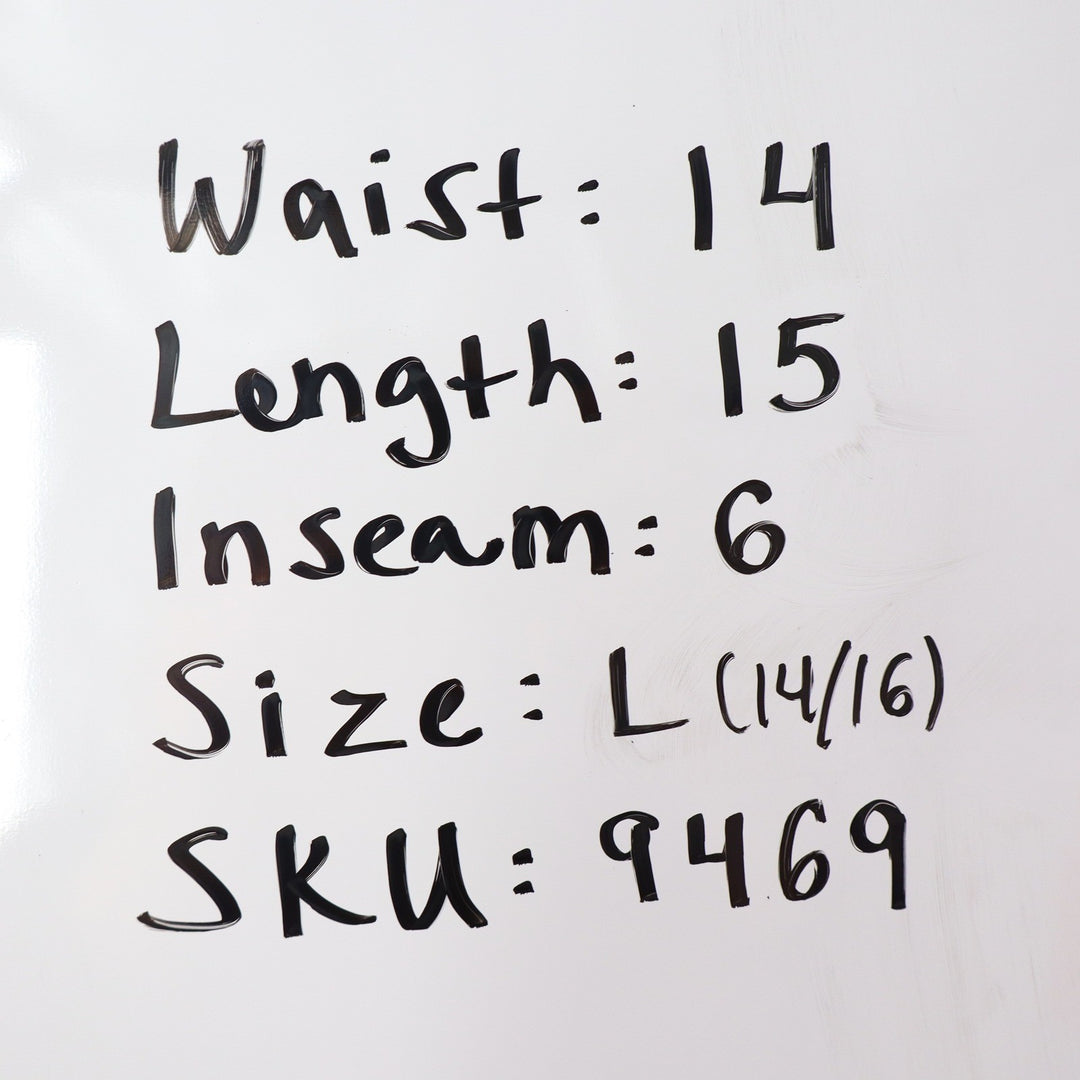 Waist: 14
Length: 15
Inseam: 6
Size: L (14/16)
SKU: 9469